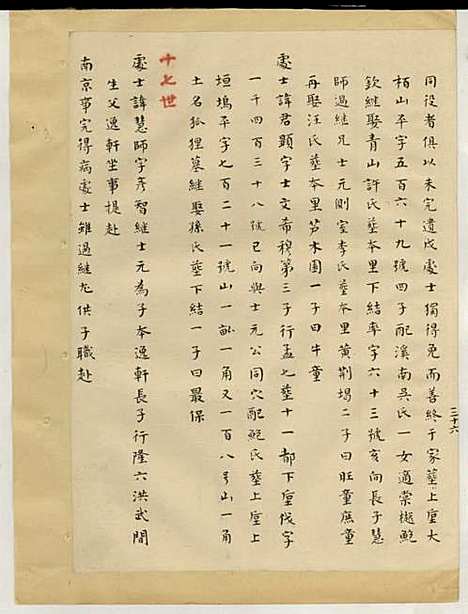 三十六
同役者俱以未完遺戍處士獨得免而善終于家塟上座大
栢山平字五百六十九號四子配溪南吳氏一女適棠樾鮑
欽繼娶青山許氏塟本里下結率字六十三號亥向長子慧
師過繼兄士元側室李氏塟本里黃荆塌二子曰旺童應童
再娶汪氏塟本里芦木園一子曰牛童
處士諱君顕字士文希穆第三子行孟七塟十一都下座伐字
一千四百三十八號已向與士元公同穴配鮑氏塟上座上
垣塢平字七百二十一號山一畝一角又一百八号山一角
土名狐狸墓繼娶孫氏塟下結一子曰最保
十七世
處士諱慧師字彥智繼士元為子本逸軒長子行隆六洪武間
生父逸軒坐事提赴
南京事完得病處士雖過繼尤供子職赴